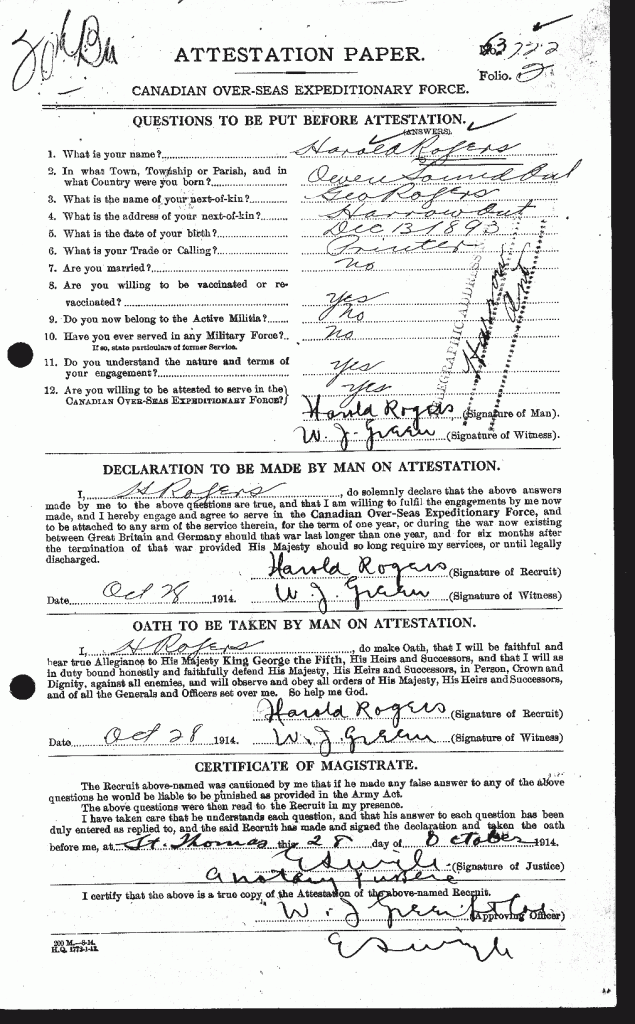 ATTESTATION PAPER.
No.
Folio. 2
CANADIAN OVER-SEAS EXPEDITIONARY FORCE.
QUESTIONS TO BE PUT BEFORE ATTESTATION.
(ANSWERS).
1. What is your name? Harold Rogers
2. In what Town, Township or Parish, and in
what Country were you born? Owen Sound Ont
3. What is the name of your next-of-kin? Geo Rogers
4. What is the address of your next-of-kin? Harrow Ont
5. What is the date of your birth? Dec 13 1893
6. What is your Trade or Calling? Printer
7. Are you married? no
8. Are you willing to be vaccinated or re-
vaccinated? yes
9. Do you now belong to the Active Militia? No
10. Have you ever served in any Military Force? no
If so, state particulars of former Service.
11. Do you understand the nature and terms of
your engagement? yes
12. Are you willing to be attested to serve in the
CANADIAN OVER-SEAS EXPEDITIONARY FORCE? yes
TELEGRAPHIC ADDRESS
Harrow
Ont
Harold Rogers (Signature of Man).
W. J. Green (Signature of Witness).
DECLARATION TO BE MADE BY MAN ON ATTESTATION.
I, H Rogers, do solemnly declare that the above answers
made by me to the above questions are true, and that I am willing to fulfil the engagements by me now
made, and I hereby engage and agree to serve in the Canadian Over-Seas Expeditionary Force, and
to be attached to any arm of the service therein, for the term of one year, or during the war now existing
between Great Britain and Germany should that war last longer than one year, and for six months after
the termination of that war provided His Majesty should so long require my services, or until legally
discharged.
Harold Rogers (Signature of Recruit)
Date Oct 28 1914. W. J. Green (Signature of Witness)
OATH TO BE TAKEN BY MAN ON ATTESTATION.
I, H Rogers, do make Oath, that I will be faithful and
bear true Allegiance to His Majesty King George the Fifth, His Heirs and Successors, and that I will as
in duty bound honestly and faithfully defend His Majesty, His Heirs and Successors, in Person, Crown and
Dignity, against all enemies, and will observe and obey all orders of His Majesty, His Heirs and Successors,
and of all the Generals and Officers set over me. So help me God.
Harold Rogers (Signature of Recruit)
Date Oct 28 1914. W. J. Green (Signature of Witness)
CERTIFICATE OF MAGISTRATE.
The Recruit above-named was cautioned by me that if he made any false answer to any of the above
questions he would be liable to be punished as provided in the Army Act.
The above questions were then read to the Recruit in my presence.
I have taken care that he understands each question, and that his answer to each question has been
duly entered as replied to, and the said Recruit has made and signed the declaration and taken the oath
before me, at St. Thomas this 28 day of October 1914.
(Signature of Justice)
a notary
I certify that the above is a true copy of the Attestation of the above-named Recruit.
W. J Green (Approving Officer)
200 M.—8-14.
H.Q. 1772-1-13.